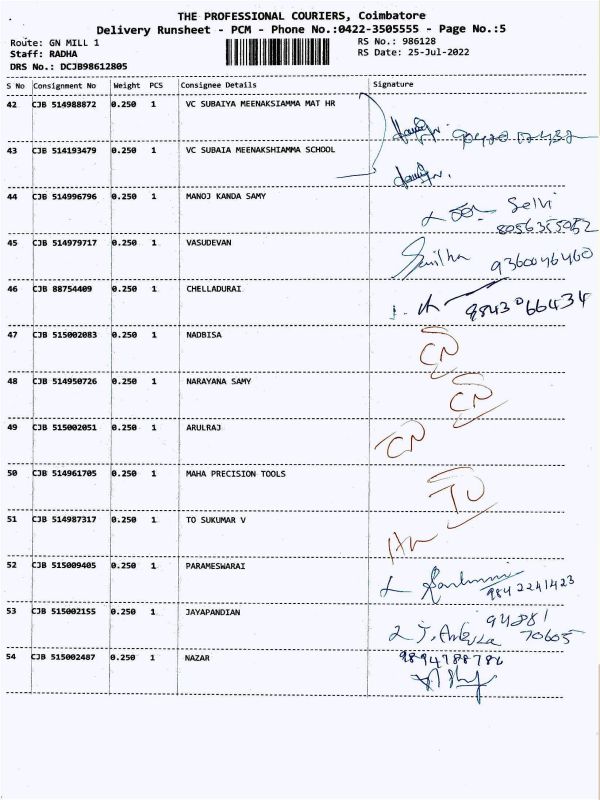 THE PROFESSIONAL COURIERS, Coimbatore
Delivery Runsheet - PCM - Phone No.:0422-3505555 - Page No.:5
Route: GN MILL 1 RS No.: 986128
Staff: RADHA RS Date: 25-Jul-2022
DRS No.: DCJB98612805
S No Consignment No Weight PCS Consignee Details Signature
42 CJB 514988872 0.250 1 VC SUBAIYA MEENAKSIAMMA MAT HR
43 CJB 514193479 0.250 1 VC SUBAIA MEENAKSHIAMMA SCHOOL
44 CJB 514996796 0.250 1 MANOJ KANDA SAMY Selvi
8056355052
45 CJB 514979717 0.250 1 VASUDEVAN 9360046460
46 CJB 88754409 0.250 1 CHELLADURAI 9843066434
47 CJB 515002083 0.250 1 NADBISA CN
48 CJB 514950726 0.250 1 NARAYANA SAMY CN
49 CJB 515002051 0.250 1 ARULRAJ CN
50 CJB 514961705 0.250 1 MAHA PRECISION TOOLS
51 CJB 514987317 0.250 1 TO SUKUMAR V
52 CJB 515009405 0.250 1 PARAMESWARAI 9842241423
53 CJB 515002155 0.250 1 JAYAPANDIAN 94881
70605
54 CJB 515002487 0.250 1 NAZAR 9894788786